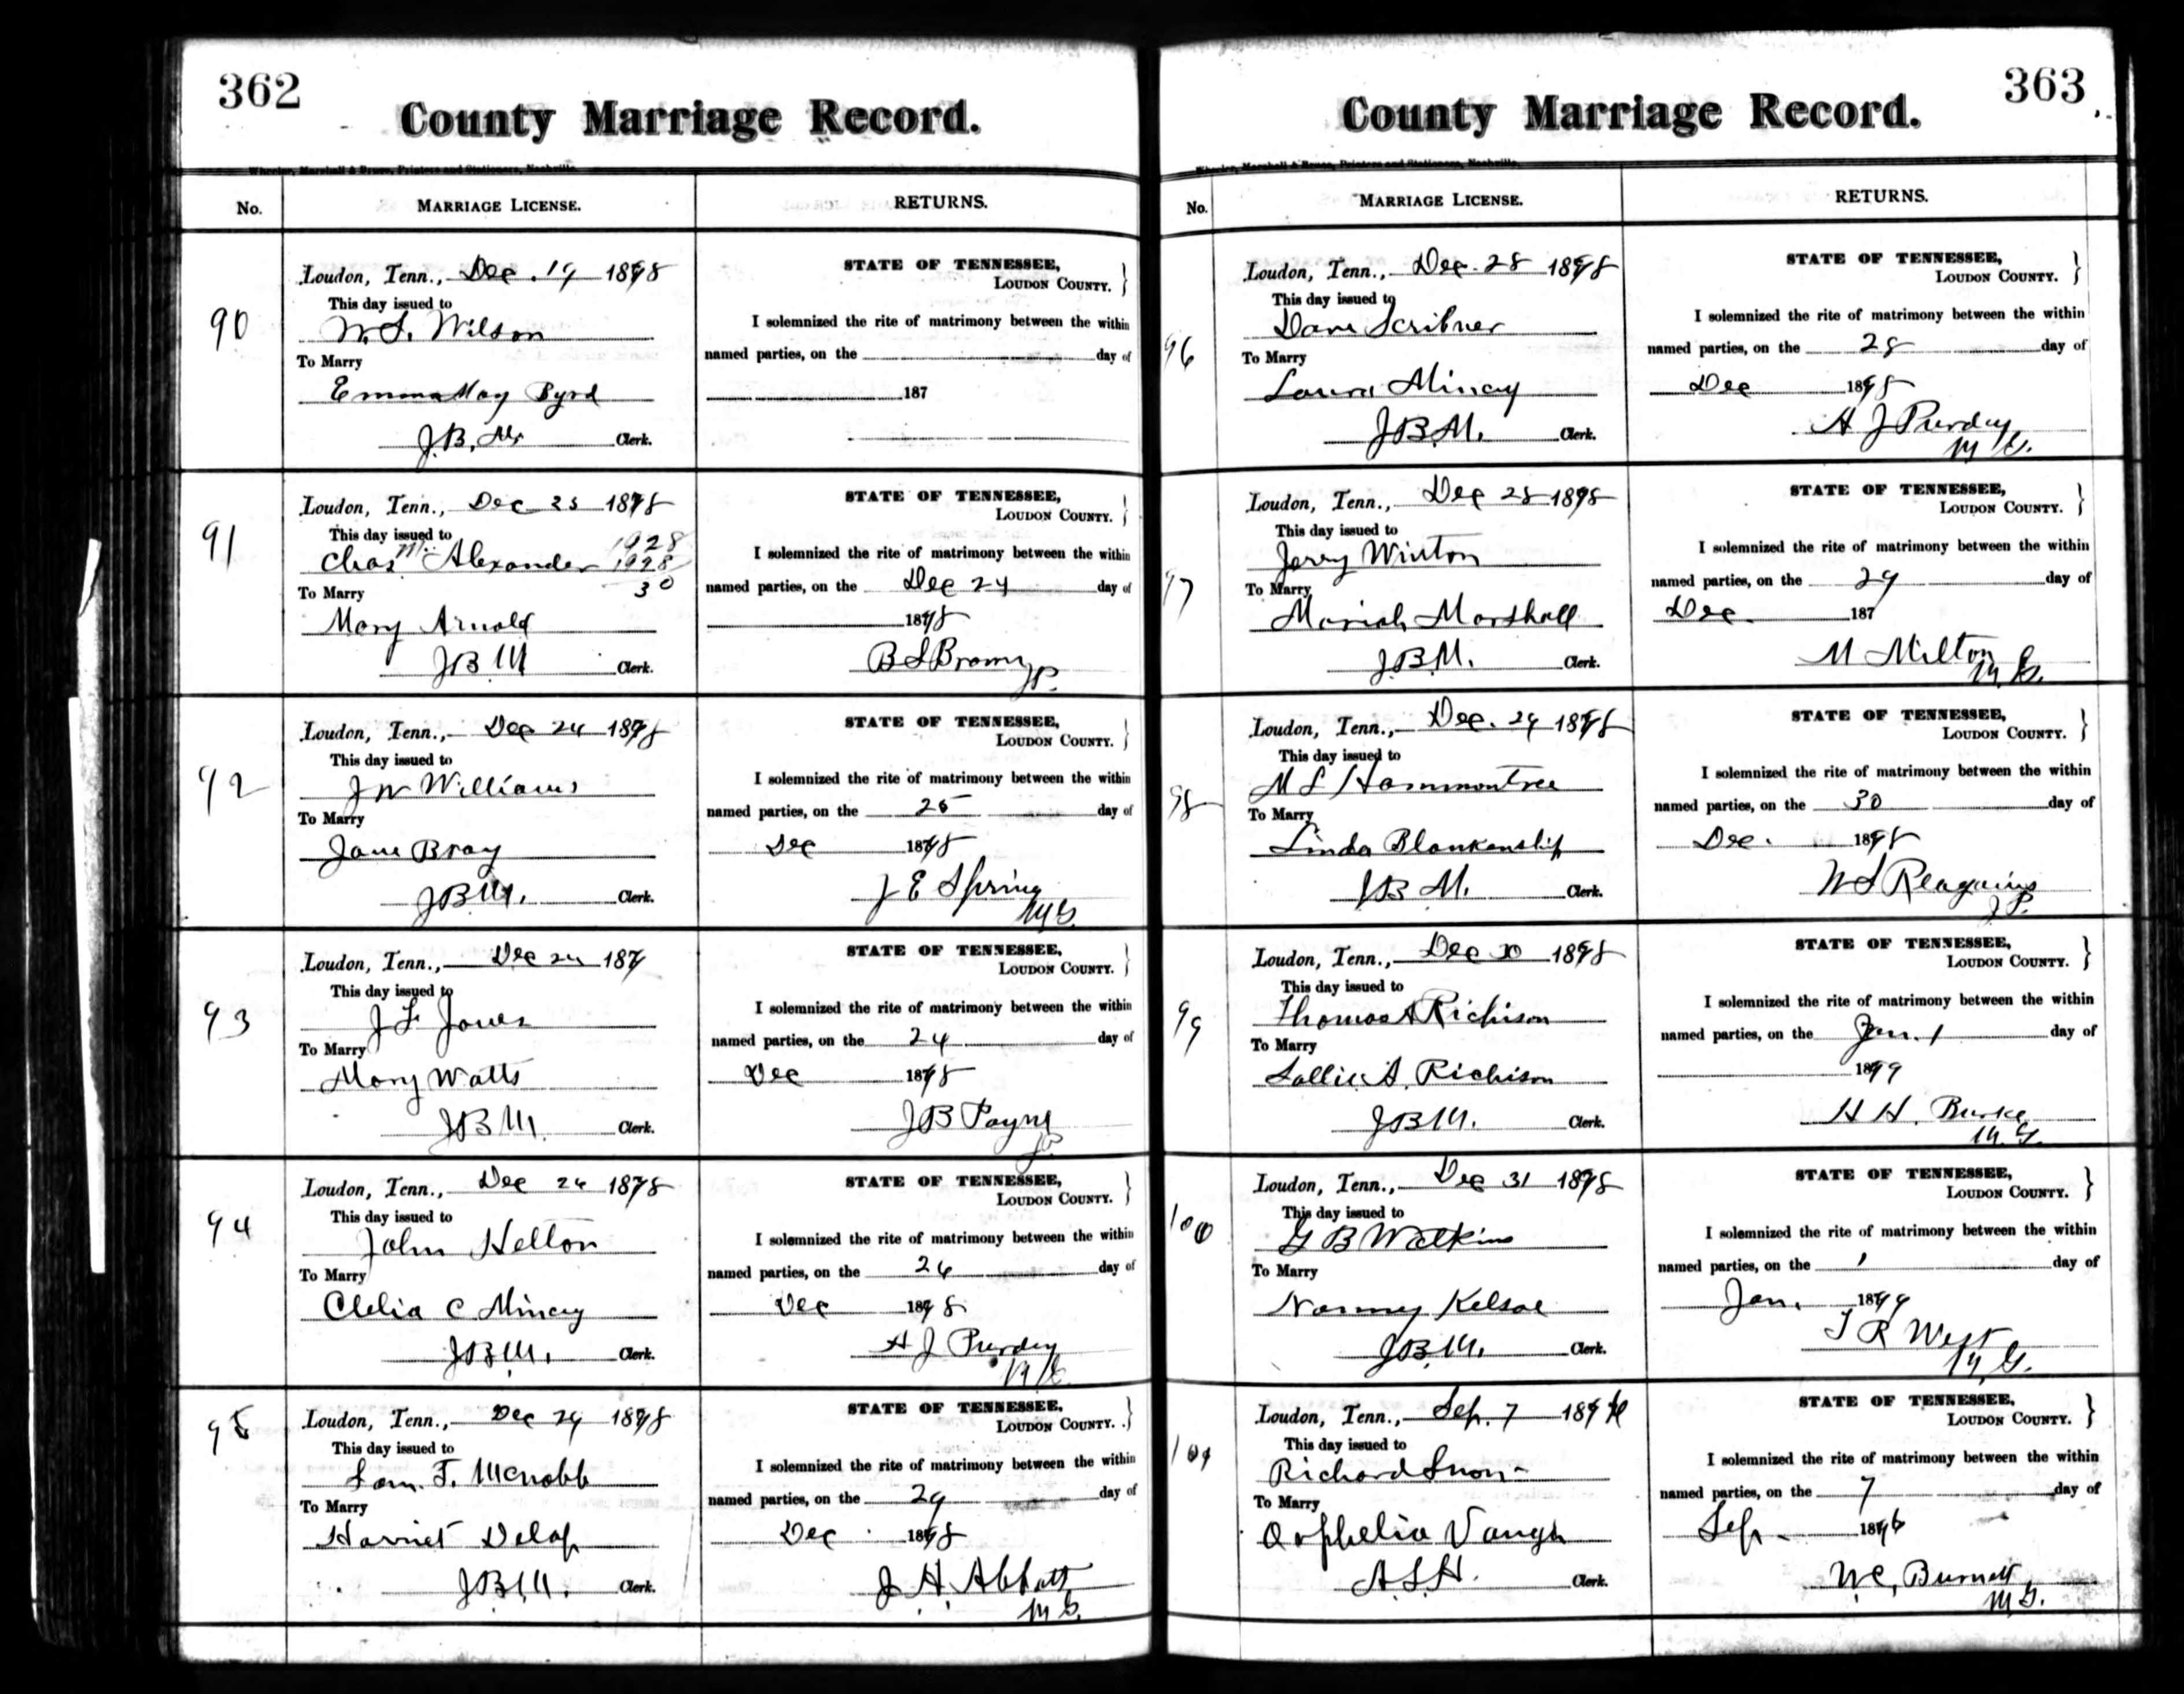 362
County Marriage Record.
Wheeler, Marshall & Bruce, Printers and Stationers, Nashville.
No.
MARRIAGE LICENSE.
RETURNS.
90
Loudon, Tenn., Dec. 19 1898
This day issued to
W. S. Wilson
To Marry
Emma May Byrd
J.B.M. Clerk.
STATE OF TENNESSEE,
LOUDON COUNTY.
I solemnized the rite of matrimony between the within
named parties, on the day of
187
91
Loudon, Tenn., Dec 23 1898
This day issued to
Chas M. Alexander
1928
1928
30
To Marry
Mary Arnold
JBM Clerk.
STATE OF TENNESSEE,
LOUDON COUNTY.
I solemnized the rite of matrimony between the within
named parties, on the Dec 24 day of
1898
B S Brown
JP.
92
Loudon, Tenn., Dec 24 1898
This day issued to
J W Williams
To Marry
Jane Bray
JBM. Clerk.
STATE OF TENNESSEE,
LOUDON COUNTY.
I solemnized the rite of matrimony between the within
named parties, on the 25 day of
Dec 1898
J E Spring
M G.
93
Loudon, Tenn., Dec 24 187
This day issued to
J F Jones
To Marry
Mary Watts
JBM. Clerk.
STATE OF TENNESSEE,
LOUDON COUNTY.
I solemnized the rite of matrimony between the within
named parties, on the 24 day of
Dec 1898
J B Payne
JP
94
Loudon, Tenn., Dec 26 1898
This day issued to
John Helton
To Marry
Clelia C Mincy
JBM. Clerk.
STATE OF TENNESSEE,
LOUDON COUNTY.
I solemnized the rite of matrimony between the within
named parties, on the 26 day of
Dec 1898
A J Purdey
M G.
95
Loudon, Tenn., Dec 29 1898
This day issued to
Sam. T. McNabb
To Marry
Harriet Delap
JBM. Clerk.
STATE OF TENNESSEE,
LOUDON COUNTY.
I solemnized the rite of matrimony between the within
named parties, on the 29 day of
Dec 1898
J. H. Abbott
M G.
363
County Marriage Record.
Wheeler, Marshall & Bruce, Printers and Stationers, Nashville.
No.
MARRIAGE LICENSE.
RETURNS.
96
Loudon, Tenn., Dec. 28 1898
This day issued to
Dave Scribner
To Marry
Laura Mincy
JBM. Clerk.
STATE OF TENNESSEE,
LOUDON COUNTY.
I solemnized the rite of matrimony between the within
named parties, on the 28 day of
Dec 1898
A J Purdey
M G.
97
Loudon, Tenn., Dec 28 1898
This day issued to
Jerry Winton
To Marry
Mariah Marshall
J.B.M. Clerk.
STATE OF TENNESSEE,
LOUDON COUNTY.
I solemnized the rite of matrimony between the within
named parties, on the 29 day of
Dec. 187
M Milton
M G.
98
Loudon, Tenn., Dec. 29 1898
This day issued to
M L Hammontree
To Marry
Linda Blankenship
JBM. Clerk.
STATE OF TENNESSEE,
LOUDON COUNTY.
I solemnized the rite of matrimony between the within
named parties, on the 30 day of
Dec. 1898
W S Reagains
J P.
99
Loudon, Tenn., Dec 30 1898
This day issued to
Thomas A Richison
To Marry
Sallie A. Richison
JBM. Clerk.
STATE OF TENNESSEE,
LOUDON COUNTY.
I solemnized the rite of matrimony between the within
named parties, on the Jan. 1 day of
1899
H H. Burke
M. G.
100
Loudon, Tenn., Dec 31 1898
This day issued to
G B Watkins
To Marry
Nanny Kelsoe
JBM. Clerk.
STATE OF TENNESSEE,
LOUDON COUNTY.
I solemnized the rite of matrimony between the within
named parties, on the 1 day of
Jan. 1899
T R West
M. G.
101
Loudon, Tenn., Sep. 7 189
This day issued to
Richard Snow
To Marry
Orphelia Vaugh
A.S.H. Clerk.
STATE OF TENNESSEE,
LOUDON COUNTY.
I solemnized the rite of matrimony between the within
named parties, on the 7 day of
Sep. 1896
W C, Burnett
M G.